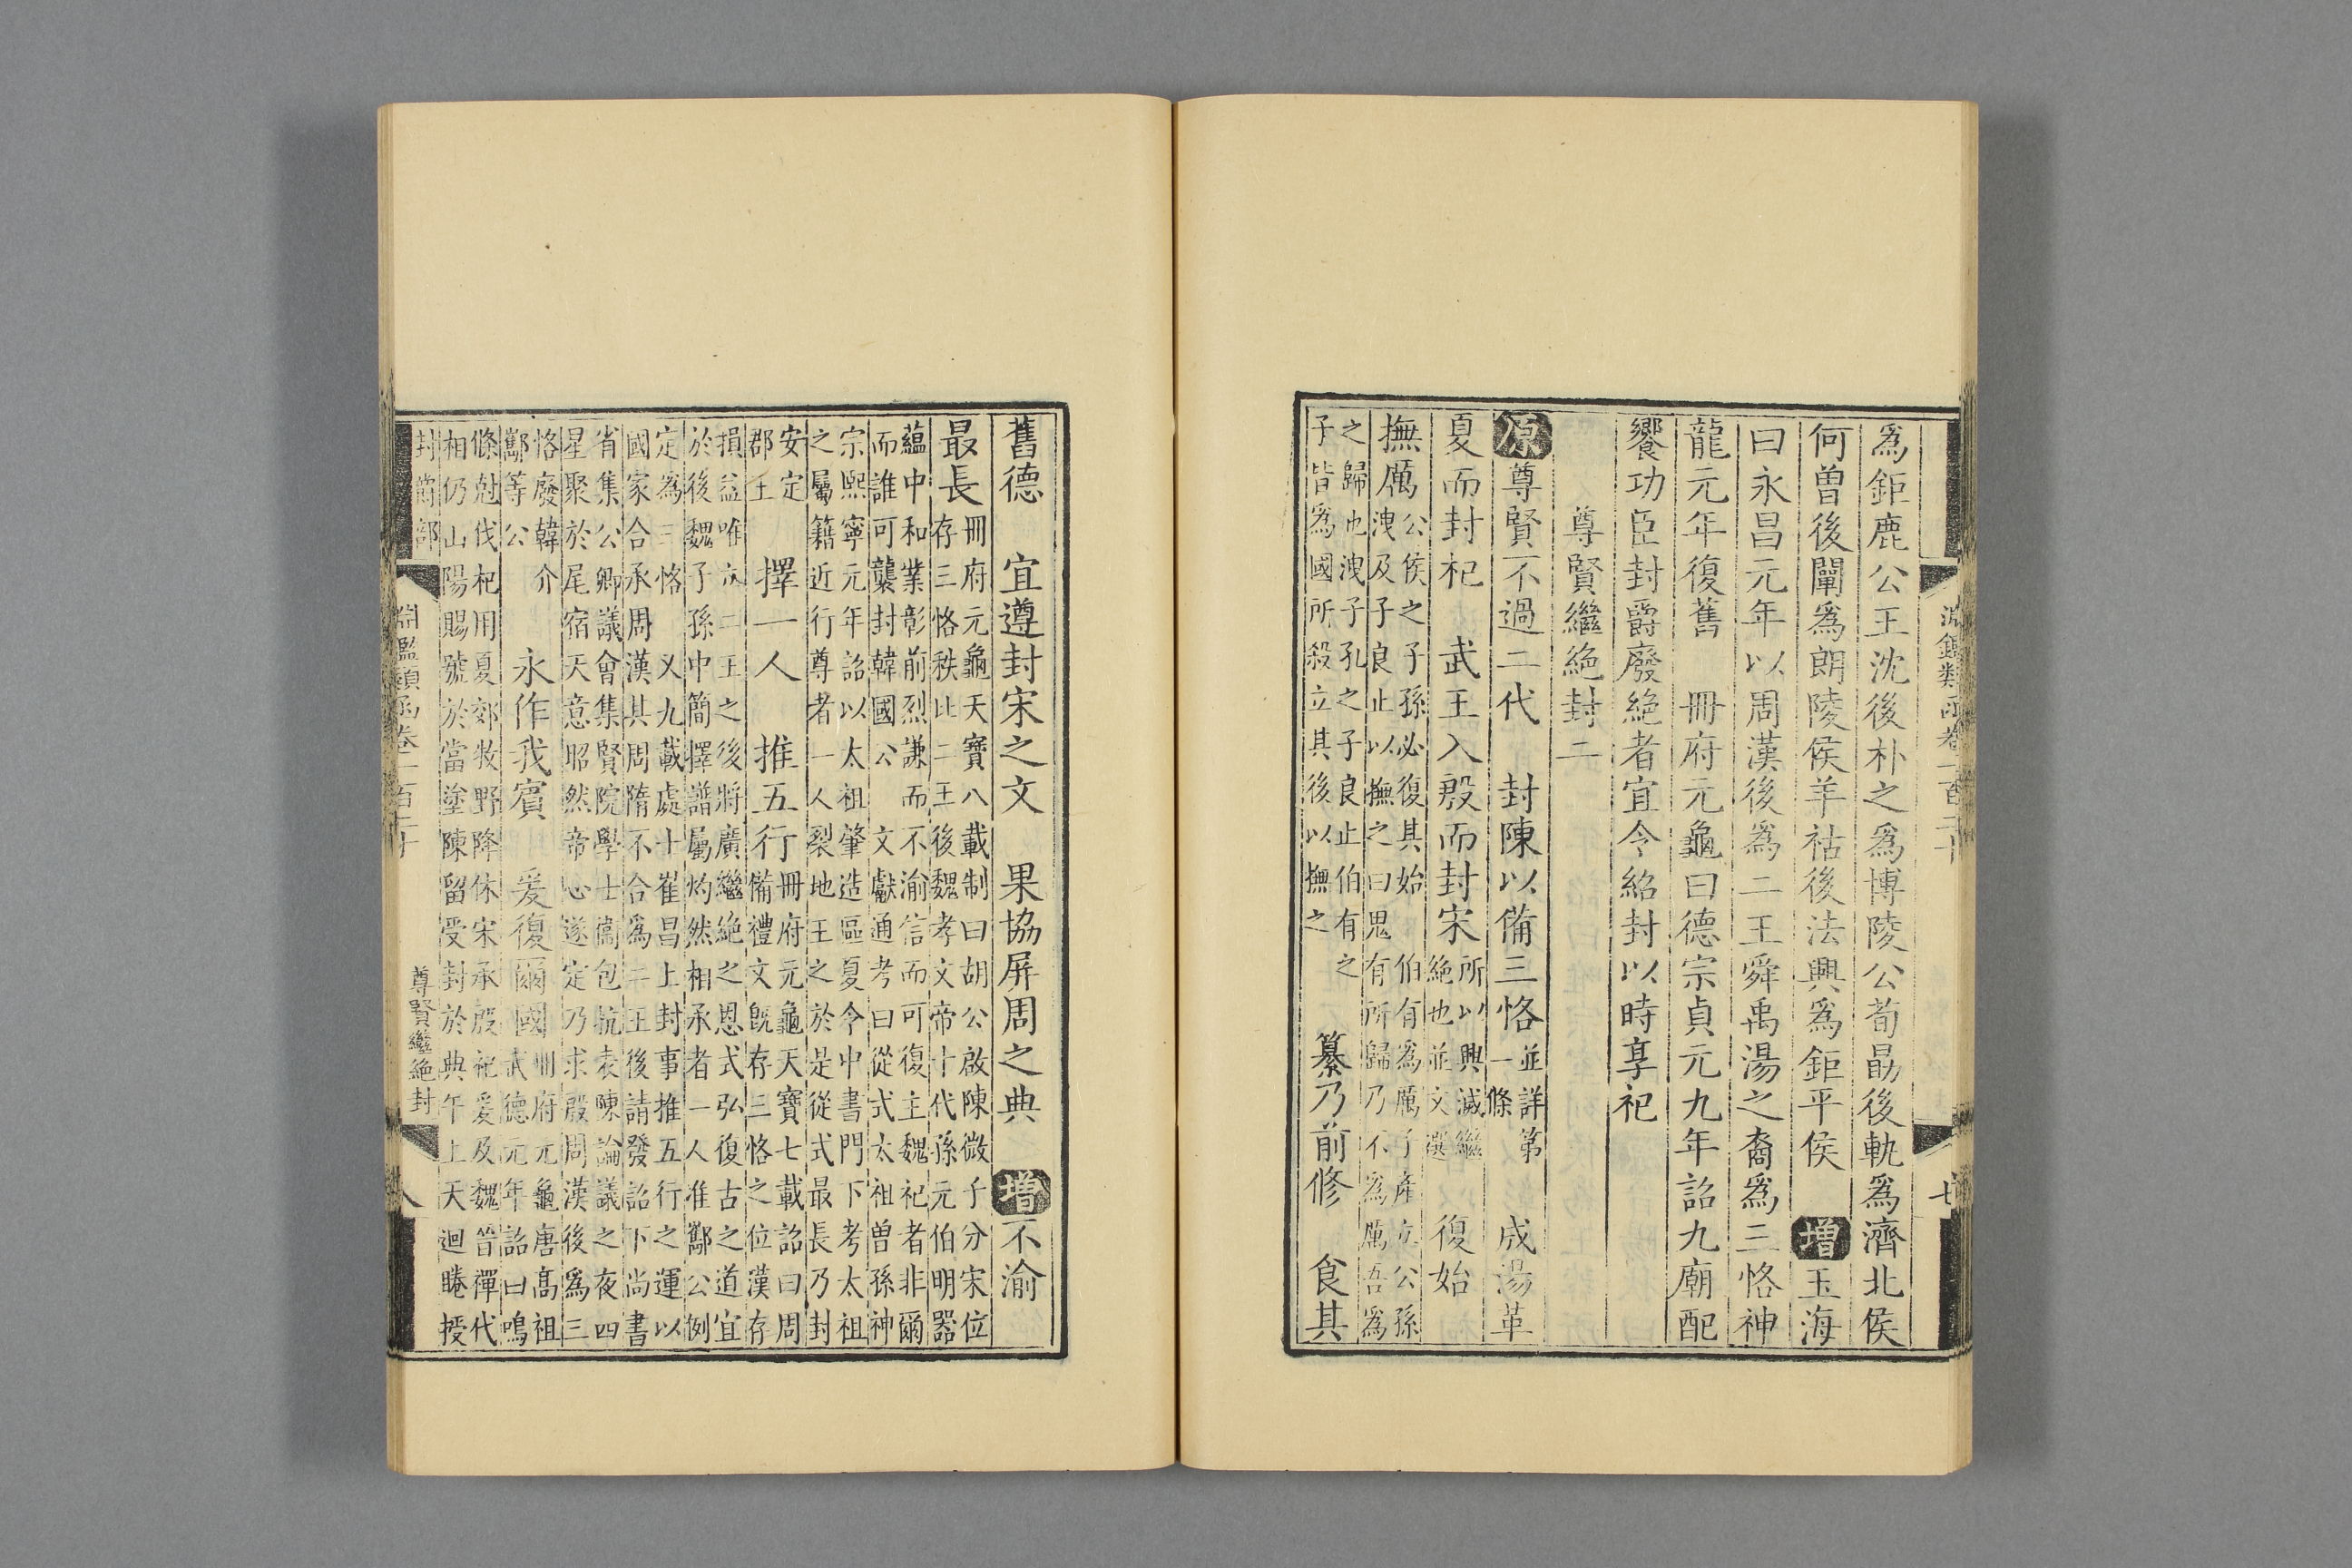 淵鑑類函卷一百三十 七
爲鉅鹿公王沈後朴之爲博陵公荀勗後軌爲濟北侯
何曽後闡爲朗陵侯羊祜後法興爲鉅平侯 增玉海
曰永昌元年以周漢後爲二王舜禹湯之裔爲三恪神
龍元年復舊 冊府元龜曰德宗貞元九年詔九廟配
饗功臣封爵廢絶者宜令紹封以時享祀
尊賢繼絶封二
原尊賢不過二代 封陳以備三恪並詳第一條 成湯革
夏而封杞 武王入殷而封宋所以興滅繼絶也並文選 復始
撫厲公侯之子孫必復其始 伯有爲厲子產立公孫
洩及子良止以撫之曰鬼有所歸乃不爲厲吾爲
之歸也洩子孔之子良止伯有之
子皆爲國所殺立其後以撫之 纂乃前修 食其
舊德 宜遵封宋之文 果協屏周之典 增不渝
最長冊府元龜天寶八載制曰胡公啟陳微子分宋位
存三恪秩比二王後魏孝文帝十代孫元伯明器
蘊中和業彰前烈謙而不渝信而可復主魏祀者非爾
而誰可襲封韓國公 文獻通考曰從式太祖曽孫神
宗熙寧元年詔以太祖肇造區夏令中書門下考太祖
之屬籍近行尊者一人裂地王之於是從式最長乃封
安定郡王 擇一人 推五行冊府元龜天寶七載詔曰周
備禮文既存三恪之位漢存
損益唯立二王之後將廣繼絶之恩式弘復古之道宜
於後魏子孫中簡擇譜屬灼然相承者一人准酅公例
定爲三恪 又九載處士崔昌上封事推五行之運以
國家合承周漢其周隋不合爲二王後請發詔下尚書
省集公卿議會集賢院學士衞包抗表陳論議之夜四
星聚於尾宿天意昭然帝心遂定乃求殷周漢後爲三
恪廢韓介酅等公 永作我賓 爰復爾國冊府元龜唐高祖
武德元年詔曰鳴
條尅伐杞用夏郊牧野降休宋承殷祀爰及魏晉禪代
相仍山陽賜號於當塗陳留受封於典午上天迴睠授
淵鑑類函卷一百三十 尊賢繼絶封 八